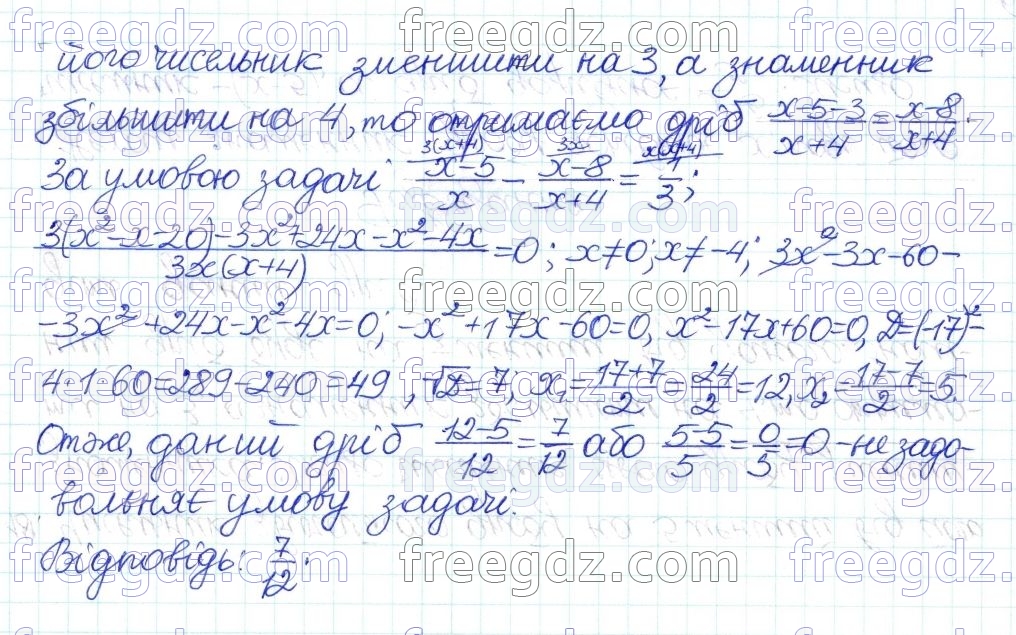 його чисельник зменшити на 3, а знаменник
збільшити на 4, то отримаємо дріб (x-5-3)/(x+4) = (x-8)/(x+4).
За умовою задачі 3(x+4) (x-5)/x - 3x (x-8)/(x+4) = x(x+4) 1/3;
(3(x²-x-20)-3x²+24x-x²-4x)/(3x(x+4)) = 0; x≠0; x≠-4; 3x²-3x-60-
-3x²+24x-x²-4x=0; -x²+17x-60=0, x²-17x+60=0, D=(-17)²-
4·1·60=289-240=49, √D=7, x₁=(17+7)/2=24/2=12, x₂=(17-7)/2=5.
Отже, даний дріб (12-5)/12=7/12 або (5-5)/5=0/5=0 - не задо-
вольняє умову задачі.
Відповідь: 7/12.